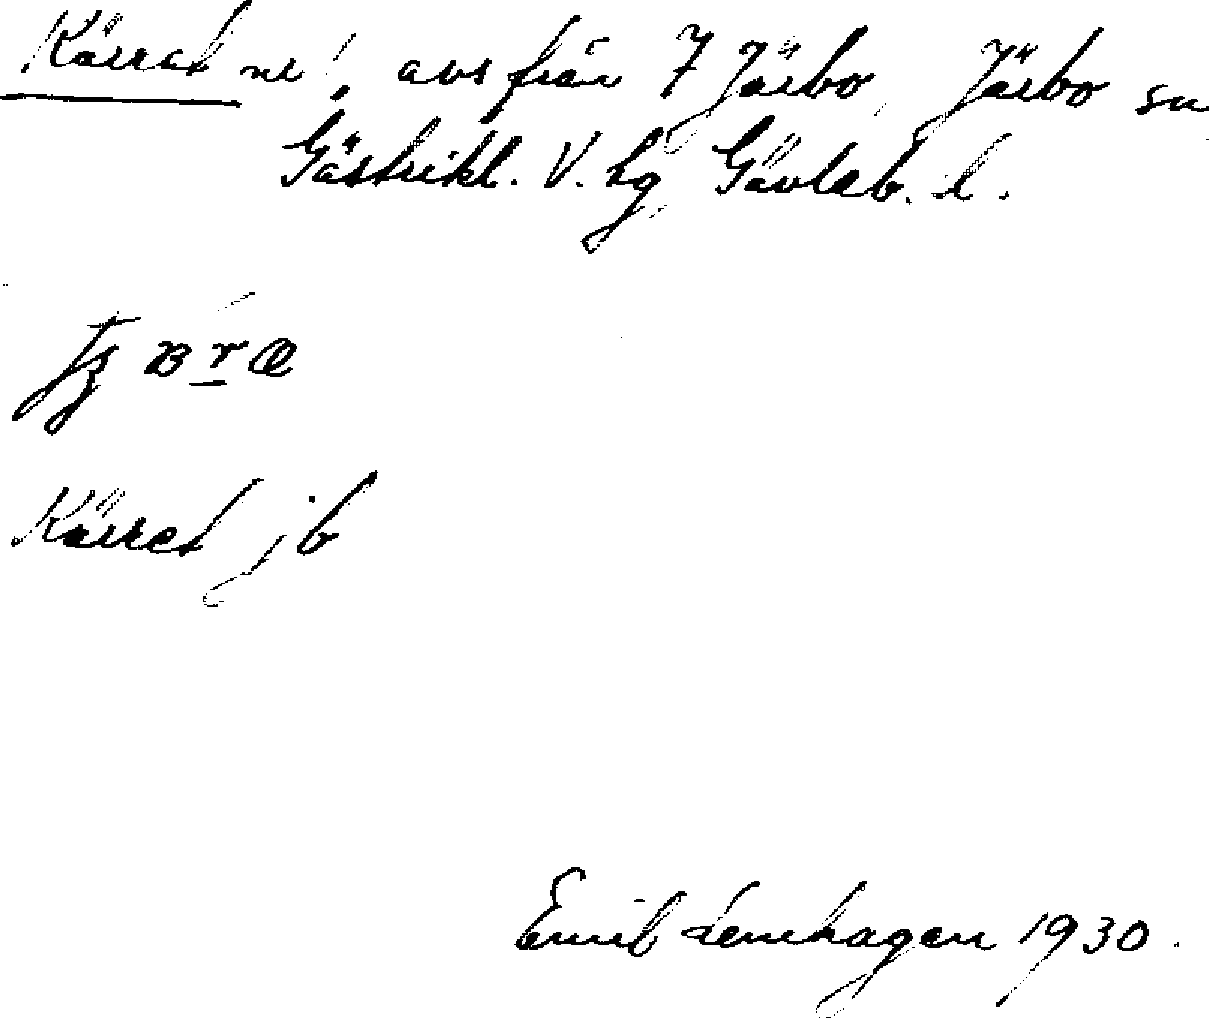 Kärret nr 1, avs från 7 Järbo, Järbo sn
Gästrikl. V. hg Gävleb. l.
Kärret jb
Emil Lenhagen 1930.